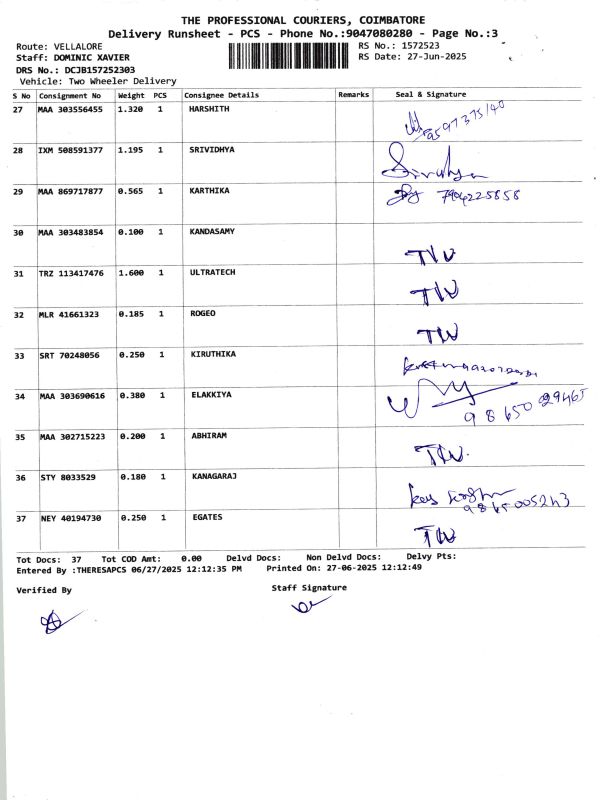 THE PROFESSIONAL COURIERS, COIMBATORE
Delivery Runsheet - PCS - Phone No.:9047080280 - Page No.:3
Route: VELLALORE
RS No.: 1572523
Staff: DOMINIC XAVIER
RS Date: 27-Jun-2025
DRS No.: DCJB157252303
Vehicle: Two Wheeler Delivery
S No Consignment No Weight PCS Consignee Details Remarks Seal & Signature
27 MAA 303556455 1.320 1 HARSHITH
28 IXM 508591377 1.195 1 SRIVIDHYA Srividhya
29 MAA 869717877 0.565 1 KARTHIKA 7904225858
30 MAA 303483854 0.100 1 KANDASAMY
31 TRZ 113417476 1.600 1 ULTRATECH
32 MLR 41661323 0.185 1 ROGEO
33 SRT 70248056 0.250 1 KIRUTHIKA
34 MAA 303690616 0.380 1 ELAKKIYA
35 MAA 302715223 0.200 1 ABHIRAM
36 STY 8033529 0.180 1 KANAGARAJ
37 NEY 40194730 0.250 1 EGATES
Tot Docs: 37 Tot COD Amt: 0.00 Delvd Docs: Non Delvd Docs: Delvy Pts:
Entered By :THERESAPCS 06/27/2025 12:12:35 PM Printed On: 27-06-2025 12:12:49
Verified By
Staff Signature